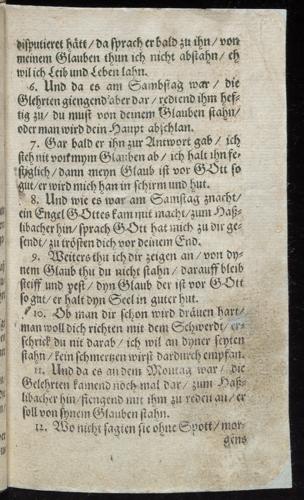 disputieret hätt / da sprach er bald zu ihn / von
meinem Glauben thun ich nicht abstahn / eh
wil ich Leib und Leben lahn.
6. Und da es am Sambstag war / die
Glehrten giengend aber dar / redtend ihm hef-
tig zu / du must von deinem Glauben stahn /
oder man wird dein Haupt abschlan.
7. Gar bald er ihn zur Antwort gab / ich
steh nit von mym Glauben ab / ich halt ihn fe-
stiglich / dann meyn Glaub ist vor GOtt so
gut / er wird mich han in schirm und hut.
8. Und wie es war am Samstag znacht /
ein Engel GOttes kam mit macht / zum Haß-
libacher hin / sprach GOtt hat mich zu dir ge-
sendt / zu trösten dich vor deinem End.
9. Weiters thu ich dir zeigen an / von dy-
nem Glaub thu du nicht stahn / darauff bleib
steiff und vest / dyn Glaub der ist vor GOtt
so gut / er halt dyn Seel in guter hut.
10. Ob man dir schon wird dräuen hart /
man woll dich richten mit dem Schwerdt / er-
schrick du nit darab / ich wil an dyner seyten
stahn / kein schmertzen wirst dardurch empfan.
11. Und da es an dem Montag war / die
Gelehrten kamend noch mal dar / zum Haß-
libacher hin / fiengend mit ihm zu reden an / er
soll von synem Glauben stahn.
12. Wo nicht sagten sie ohne Spott / mor-
gens